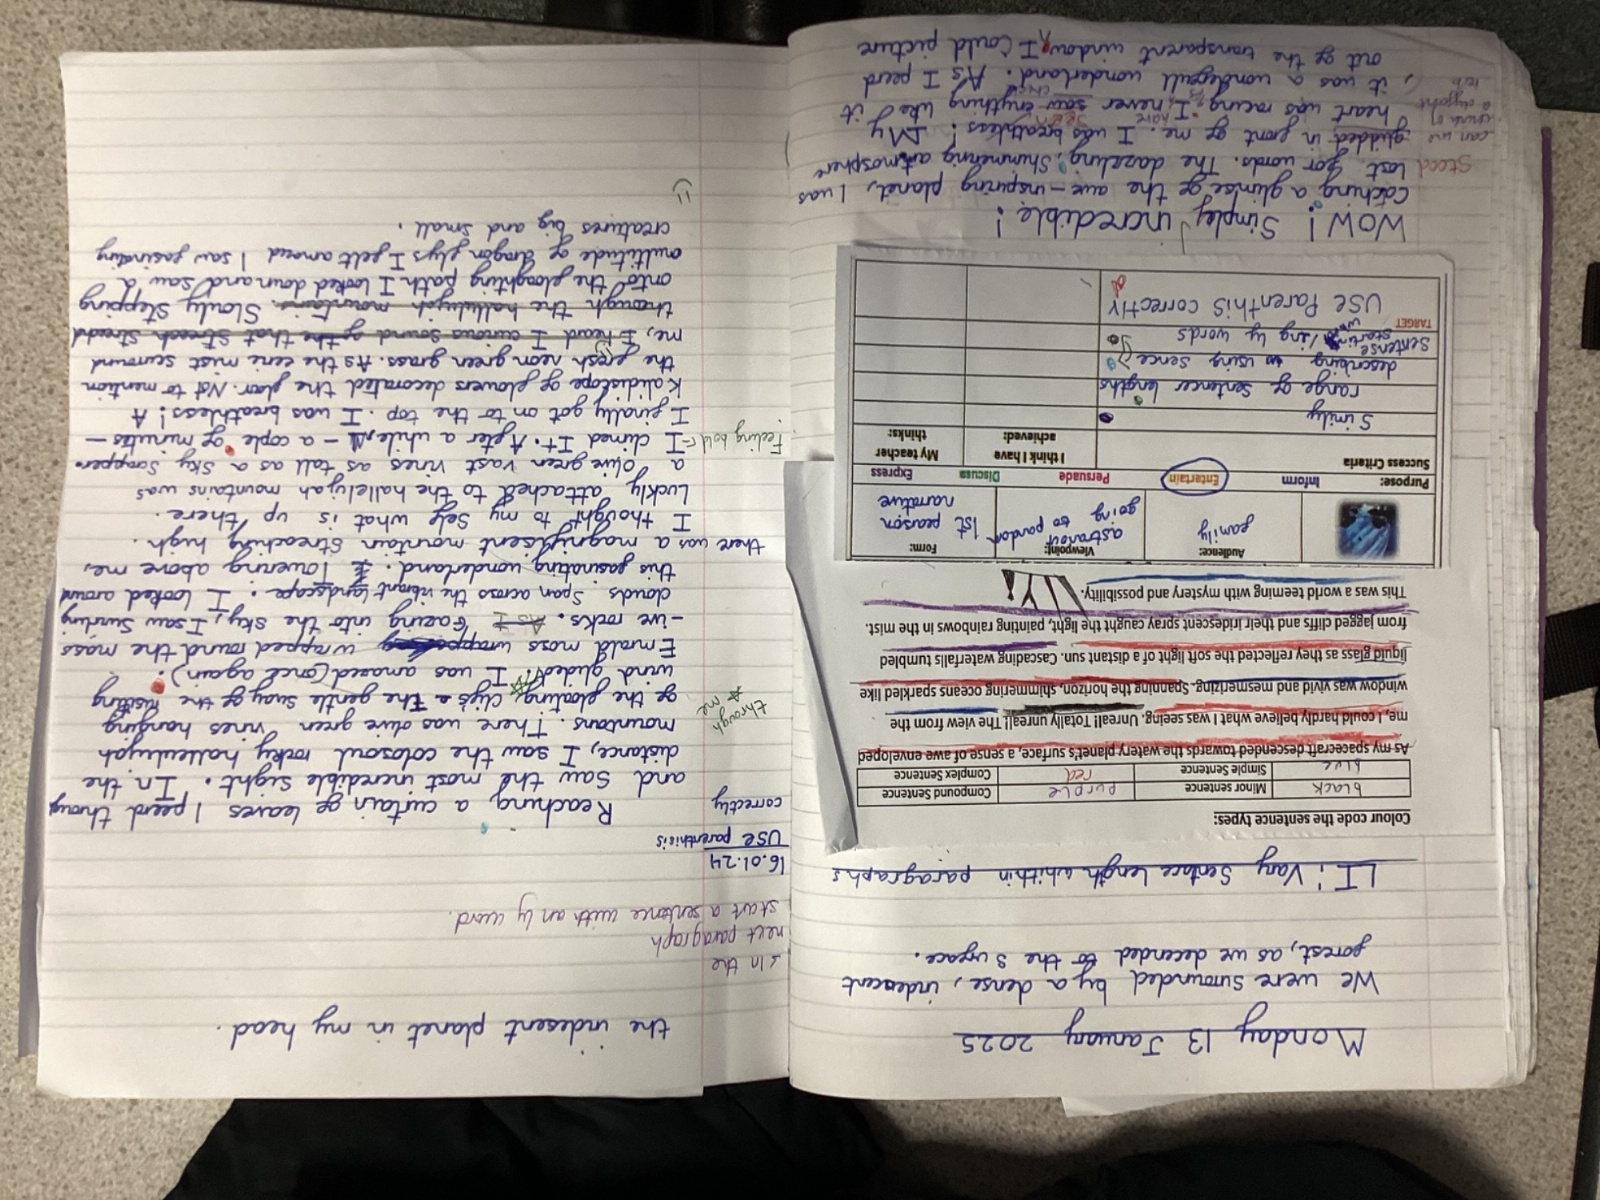 Monday 13 January 2025
We were surrounded by a dense, indescent
forest, as we decended to the surface.
LI: Vary Sentace length whithin paragraphs
Colour code the sentence types:
black Minor sentence purple Compound Sentence
blue Simple Sentence red Complex Sentence
As my spacecraft descended towards the watery planet's surface, a sense of awe enveloped
me, I could hardly believe what I was seeing. Unreal! Totally unreal! The view from the
window was vivid and mesmerizing. Spanning the horizon, shimmering oceans sparkled like
liquid glass as they reflected the soft light of a distant sun. Cascading waterfalls tumbled
from jagged cliffs and their iridescent spray caught the light, painting rainbows in the mist.
This was a world teeming with mystery and possibility.
Audience: family
Viewpoint: astranout going to pandor
Form: 1st pearson narrative
Purpose: Inform Entertain Persuade Discuss Express
Success Criteria
I think I have achieved:
My teacher thinks:
Simily
range of sentencer lengths
describing using sence
Sentence starting / ing ly words
TARGET
USE Parenthis correctly
WOW! Simpley incredible!
Catching a glimse of the awe-inspiring planet, I was
lost for words. The dazeling, shimmering atmosphere
glidded in front of me. I was breathless! My
heart was racing, I have never saw seen enything like it
, it was a wondefull wonderland. As I peerd
out of the transparent window, I could picture
Steed
can we
think of
a diffrent
the indesent planet in my head.
↓ In the
next paragraph
start a sentence with an ly word.
16.01.24
USE parenthisis
correctly
Reaching a curtain of leaves I peerd throug
and saw the most incredible sight. In the
distance, I saw the colosoul rocky halleulujah
mountans. There was olive green vines hanging
of the floating clifs. The gentle sway of the
wind glided. I was amazed (once again).
through
me
Emrald moss wrapped round the mass
-ive rocks. As I Gazing into the sky, I saw Swirling
clouds Span across the vibrant landscape. I looked around
this fasinating wonderland. Towering above me,
there was a magnifisent mountain streaching high.
I thought to my self what is up there.
Luckly attached to the hallelujah mountains was
a olive green vast vines as tall as a sky scrapper.
I climed It. After a while, - a cople of minutes -
Feeling bold
I finally got on to the top. I was breathless! A
Kalidiscope of flowers decorated the floor. Not to mention
the fresh neon green grass. As the eerie mist surround
me, I heard I curious sound of the that
through the hallelujah mountains. Slowly stepping
onto the flooghting path I looked down and saw a
multitude of dragon flys I felt amazed I saw fasinding
creatures big and small.